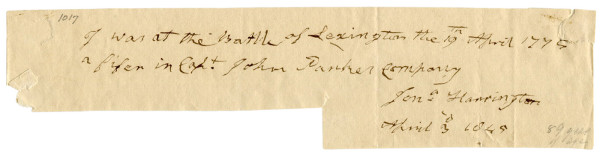 1017
I was at the Battle of Lexington the 19th April 1775
a fifer in Capt John Parker Company
Jona Harrington
April 3 1848